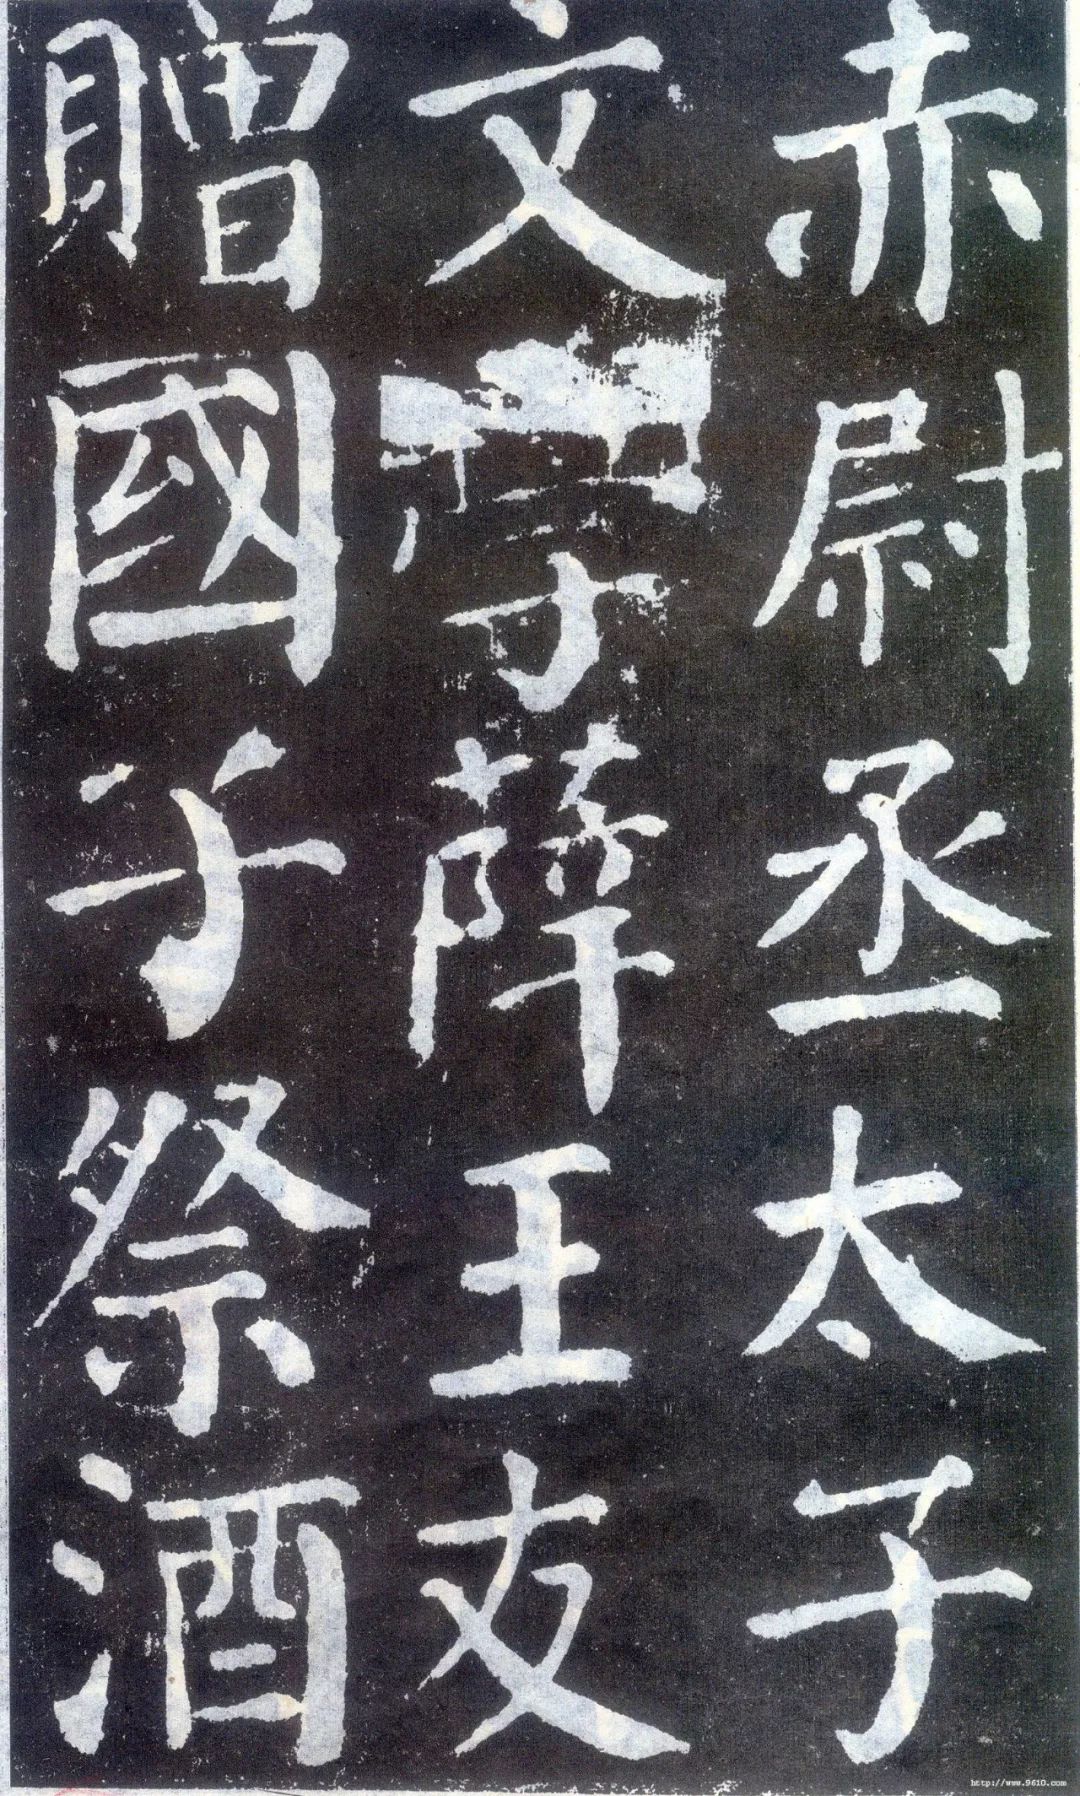 赤尉丞太子
文學薛王友
贈國子祭酒
http://www.9610.com